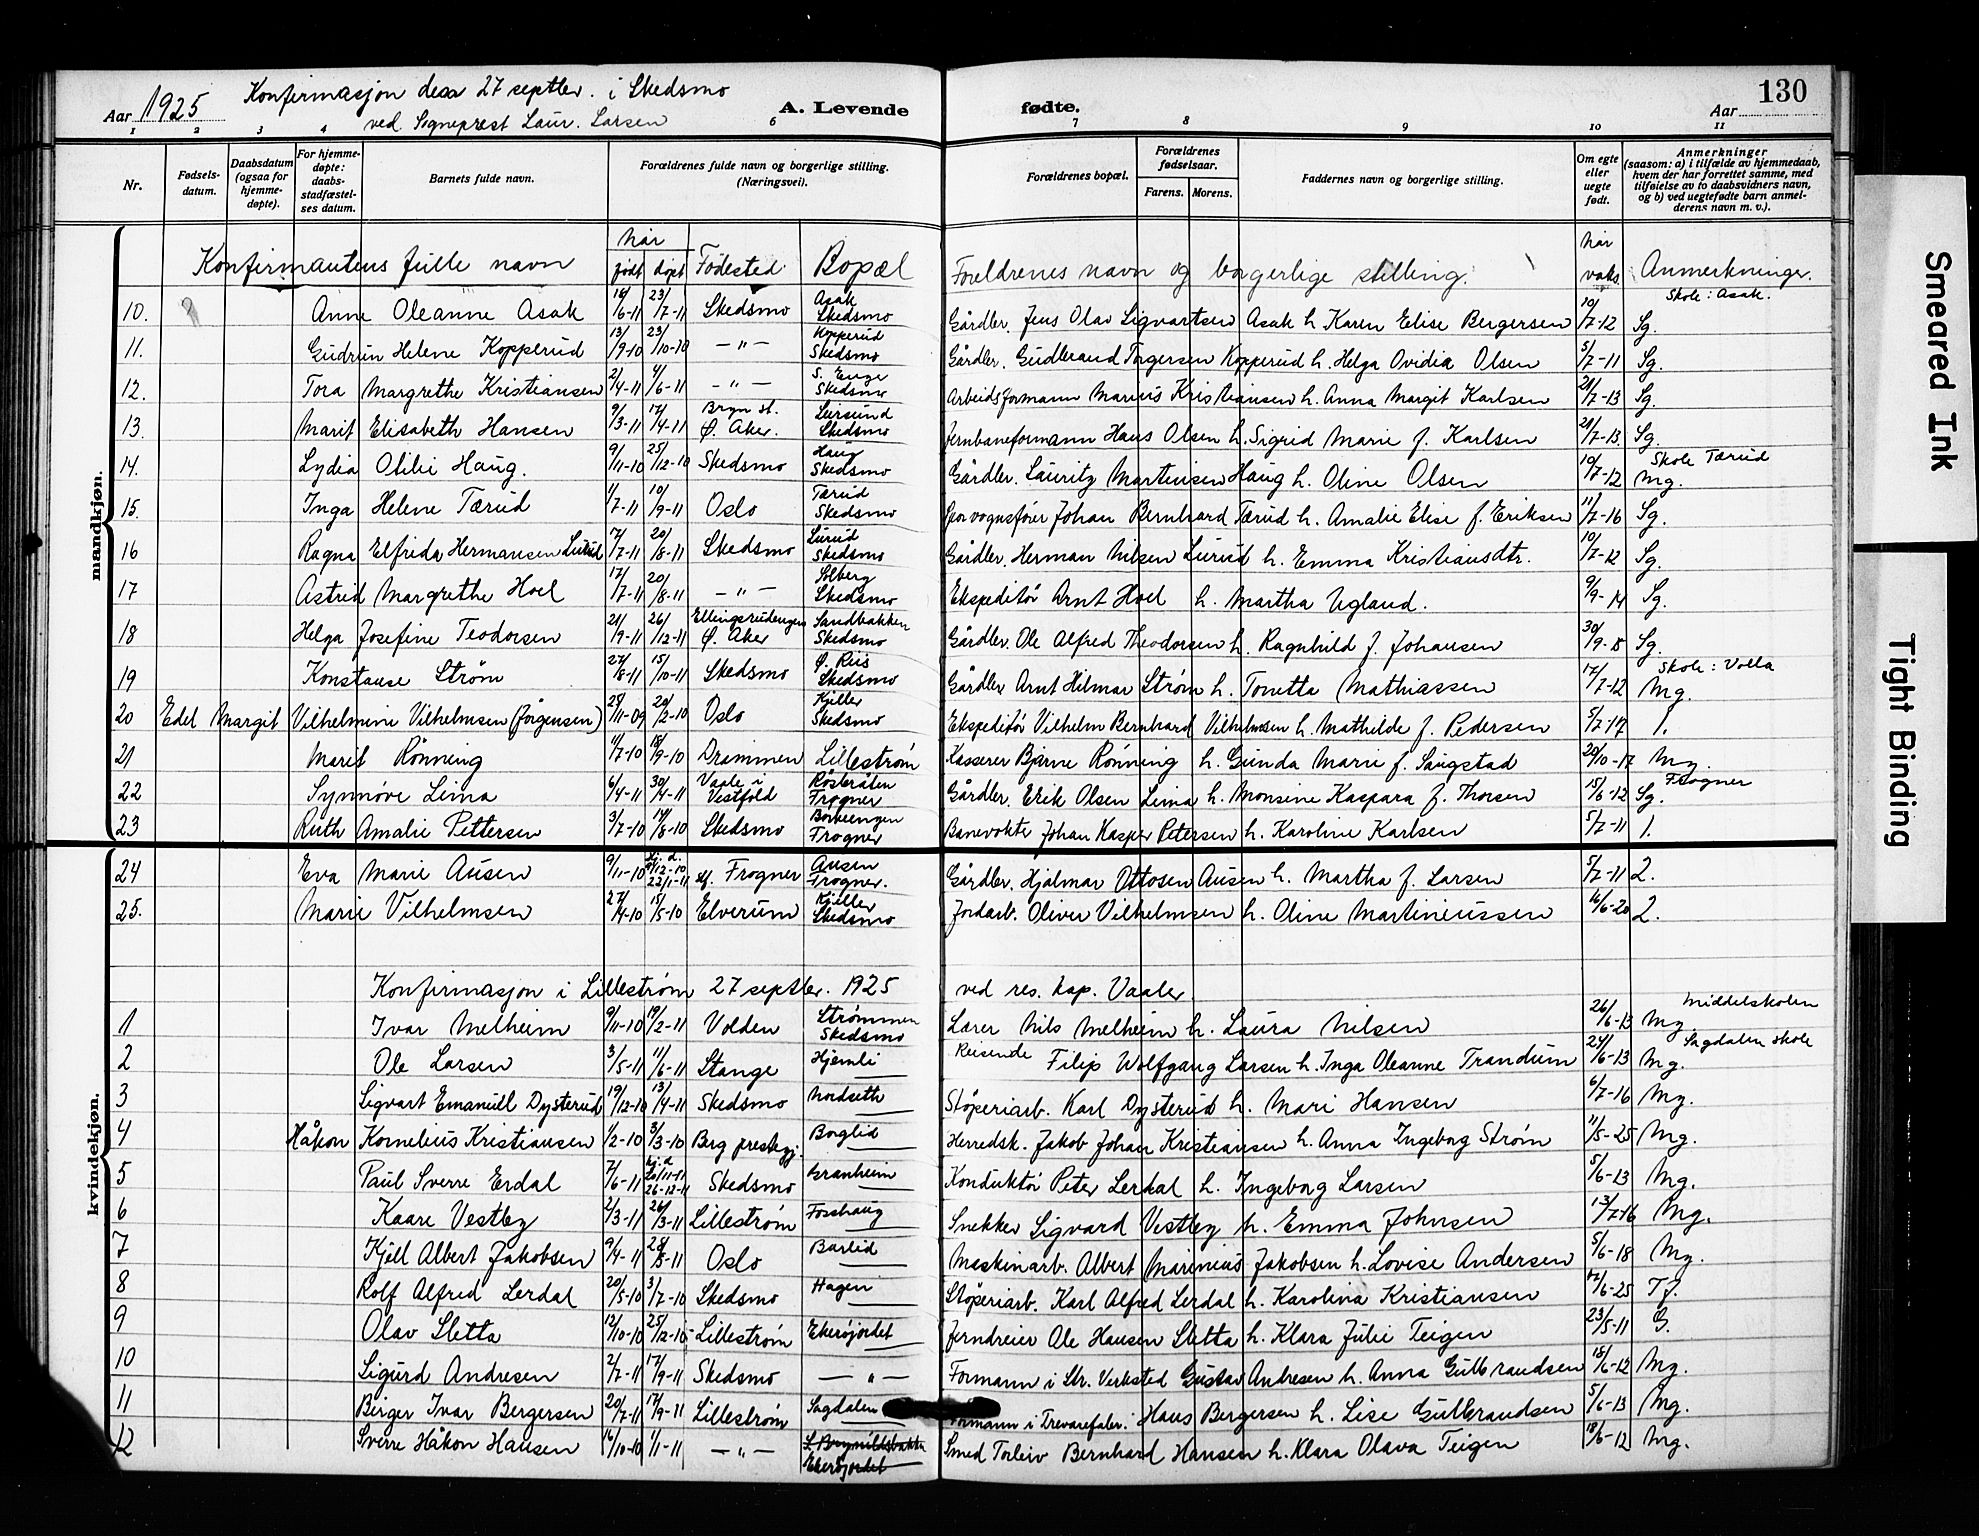 Aar 1925 Konfirmasjon den 27 septbr. i Skedsmo
ved Sogneprest Laur. Larsen
A. Levende fødte.
Aar 130
1 2 3 4 6 7 8 9 10 11
Nr. Fødselsdatum. Daabsdatum (ogsaa for hjemmedøpte). For hjemmedøpte: daabsstadfæstelses datum. Barnets fulde navn. Forældrenes fulde navn og borgerlige stilling. (Næringsvei). Forældrenes bopæl. Forældrenes fødselsaar. Farens. Morens. Faddernes navn og borgerlige stilling. Om egte eller uegte født. Anmerkninger (saasom: a) i tilfælde av hjemmedaab, hvem der har forrettet samme, med tilføielse av to daabsvidners navn, og b) ved uegtefødte barn anmelderens navn m. v.).
mandkjøn.
Konfirmantens fulle navn når født døpt Fødested Bopæl Foreldrenes navn og borgerlige stilling. når vaks. Anmerkninger.
10. Anne Oleanne Asak 18/6-11 23/7-11 Skedsmo Asak Skedsmo Gårdbr. Jens Olav Sigvartsen Asak h. Karen Elise Bergersen 10/7-12 Sg. Skole: Asak.
11. Gudrun Helene Kopperud 13/9-10 23/10-10 — " — Kopperud Skedsmo Gårdbr. Gudbrand Torgersen Kopperud h. Helga Ovidia Olsen 5/7-11 Sg.
12. Tora Margrethe Kristiansen 2/4-11 4/6-11 — " — S. Enge Skedsmo Arbeidsformann Marius Kristiansen h. Anna Margit Karlsen 21/7-13 Sg.
13. Marit Elisabeth Hansen 9/3-11 17/4-11 Bryn st. Ø. Aker. Skedsmo Jernbaneformann Hans Olsen h. Sigrid Marie f. Karlsen 21/7-13. Sg.
14. Lydia Otilie Haug. 9/11-10 25/12-10 Skedsmo Haug Skedsmo Gårdbr. Lauritz Martinsen Haug h. Oline Olsen 10/7-12 Mg. Skole Tærud
15. Inga Helene Tærud 1/7-11 10/9-11 Oslo Tærud Skedsmo Sporvognsfører Johan Bernhard Tærud h. Amalie Elise f. Eriksen 11/7-16 Sg.
16 Ragna Elfrida Hermansen Lurud 7/7-11 20/8-11 Skedsmo Lurud Skedsmo Gårdbr. Herman Nilsen Lurud h. Emma Kristiansdtr. 10/7-12 Sg.
17 Astrid Margrethe Hoel 17/7-11 20/8-11 — " — Solberg Skedsmo Ekspeditør Arnt Hoel h. Martha Ugland. 9/9-14 Sg.
18 Helga Josefine Teodorsen 21/9-11 26/12-11 Ellingsrudengen Ø. Aker Sandbakken Skedsmo Gårdbr. Ole Alfred Theodorsen h. Ragnhild f. Johansen 30/9-15 Sg.
19 Konstanse Strøm 27/8-11 15/10-11 Skedsmo Ø. Riis Skedsmo Gårdbr. Arnt Hilmar Strøm h. Tonetta Mathiassen 17/7-12 Mg. Skole: Volla
20 Edel Margit Vilhelmine Vilhelmsen (Jørgensen) 25/11-09 20/2-10 Oslo Kjeller Skedsmo Ekspeditør Vilhelm Bernhard Vilhelmsen h. Mathilde f. Pedersen 5/7-17 1.
21 Marit Rønning 11/7-10 18/9-10 Drammen Lillestrøm Kasserer Bjarne Rønning h. Gunda Marie f. Saugstad 20/10-17 Mg.
22 Synnøve Lima 6/4-11 30/4-11 Vaale i Vestfold Røsteråten Frogner Gårdbr. Erik Olsen Lima h. Monsine Kaspara f. Thorsen 15/6-12 Sg. Frogner
23 Ruth Amalie Pettersen 3/7-10 14/8-10 Skedsmo Frogner Banevokter Johan Kasper Petersen h. Karoline Karlsen 5/7-11 1.
24 Eva Marie Ausen 9/11-10 hj. d. 22/1-11 stf. Frogner Ausen Frogner. Gårdbr. Hjalmar Ottosen Ausen h. Martha f. Larsen 5/7-11 2.
25. Marie Vilhelmsen 27/4-10 15/5-10 Elverum Kjeller Skedsmo Jordarb. Oliver Vilhelmsen h. Oline Martiniussen 16/6-20 2.
Konfirmasjon i Lillestrøm 27 septbr. 1925 ved res. kap. Vaaler.
kvindekjøn.
1 Ivar Melheim 9/11-10 19/2-11 Volden Strømmen Skedsmo Lærer Nils Melheim h. Laura Nilsen 26/6-13 Mg. Middelskolen
2 Ole Larsen 3/5-11 11/6-11 Stange Hjemli Reisende Filip Wolfgang Larsen h. Inga Oleanne Trandum 24/6-13 Mg. Sagdalen skole
3 Sigvart Emanuell Dysterud 19/12-10 13/4-11 Skedsmo Nordseth Støperiarb. Karl Dysterud h. Mari Hansen 6/7-16 Mg.
4 Håkon Kornelius Kristiansen 1/2-10 3/3-10 Berg prestegj. Borglid Herredsk. Jakob Johan Kristiansen h. Anna Ingeborg Strøm 11/5-25 Mg.
5 Paul Sverre Erdal 7/6-11 hj. d 20/11-11 26-12-11 Skedsmo Granheim Konduktør Peter Lerdal h. Ingeborg Larsen 5/6-13 Mg.
6 Kaare Vestby 2/3-11 26/3-11 Lillestrøm Fosshaug Snekker Sigvard Vestby h. Emma Johnsen 13/7-16 Mg.
7 Kjell Albert Jakobsen 9/4-11 28/5-11 Oslo Barlid Maskinarb. Albert Marinius Jakobsen h. Lovise Andersen 5/6-18 Mg.
8 Rolf Alfred Lerdal 20/5-10 3/7-10 Skedsmo Hagen Støperiarb. Karl Alfred Lerdal h. Karolina Kristiansen /6-25 Tf.
9 Olav Sletta 12/10-10 25/12-10 Lillestrøm Ekerøjordet Jerndreier Ole Hansen Sletta h. Klara Julie Teigen 23/5-11 G.
10 Sigurd Andresen 2/7-11 17/9-11 Skedsmo — " — Formann i Str. Verksted Gustav Andresen h. Anna Gulbrandsen 18/6-12 Mg.
11 Birger Ivar Bergersen 20/7-11 17/9-11 Lillestrøm Sagdalen Formann i Trevarefabr. Hans Bergersen h. Lise Gulbrandsen 5/6-13 Mg.
12 Sverre Håkon Hansen 16/10-10 1/1-11 — " — Ekerøjordet Smed Torleiv Bernhard Hansen h. Klara Olava Teigen 18/6-12 Mg.
Smeared Ink
Tight Binding